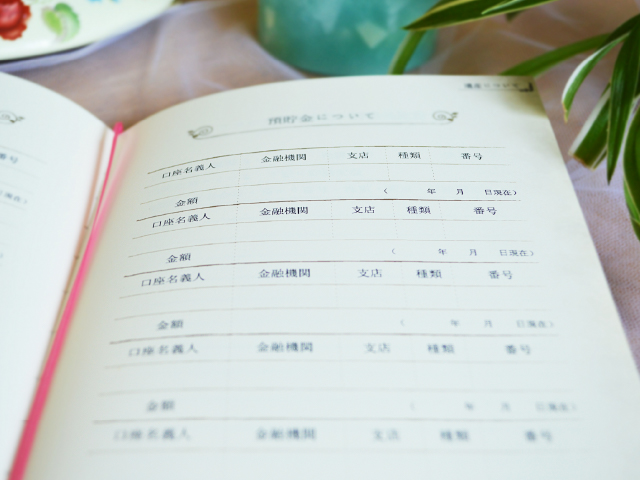 預貯金について
口座名義人 金融機関 支店 種類 番号
金額 ( 年 月 日現在)
口座名義人 金融機関 支店 種類 番号
金額 ( 年 月 日現在)
口座名義人 金融機関 支店 種類 番号
金額 ( 年 月 日現在)
口座名義人 金融機関 支店 種類 番号
金額 ( 年 月 日現在)
口座名義人 金融機関 支店 種類 番号